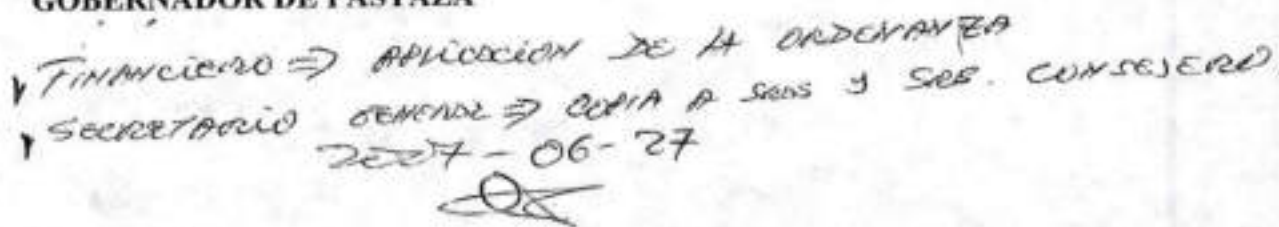 GOBERNADOR DE PASTAZA
FINANCIERO ⇒ APLICACIÓN DE LA ORDENANZA
SECRETARIO GENERAL ⇒ COPIA A SRES Y SRS. CONSEJERO
2007-06-27